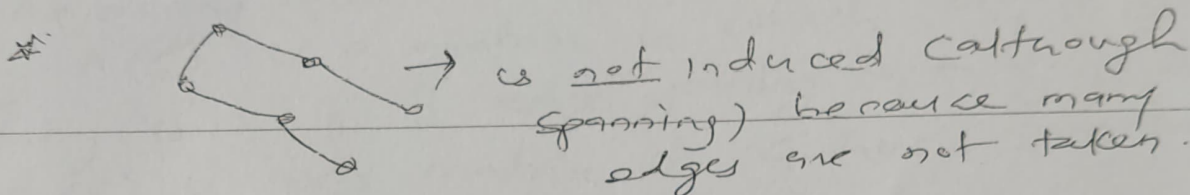 is not induced (although
spanning) because many
edges are not taken.